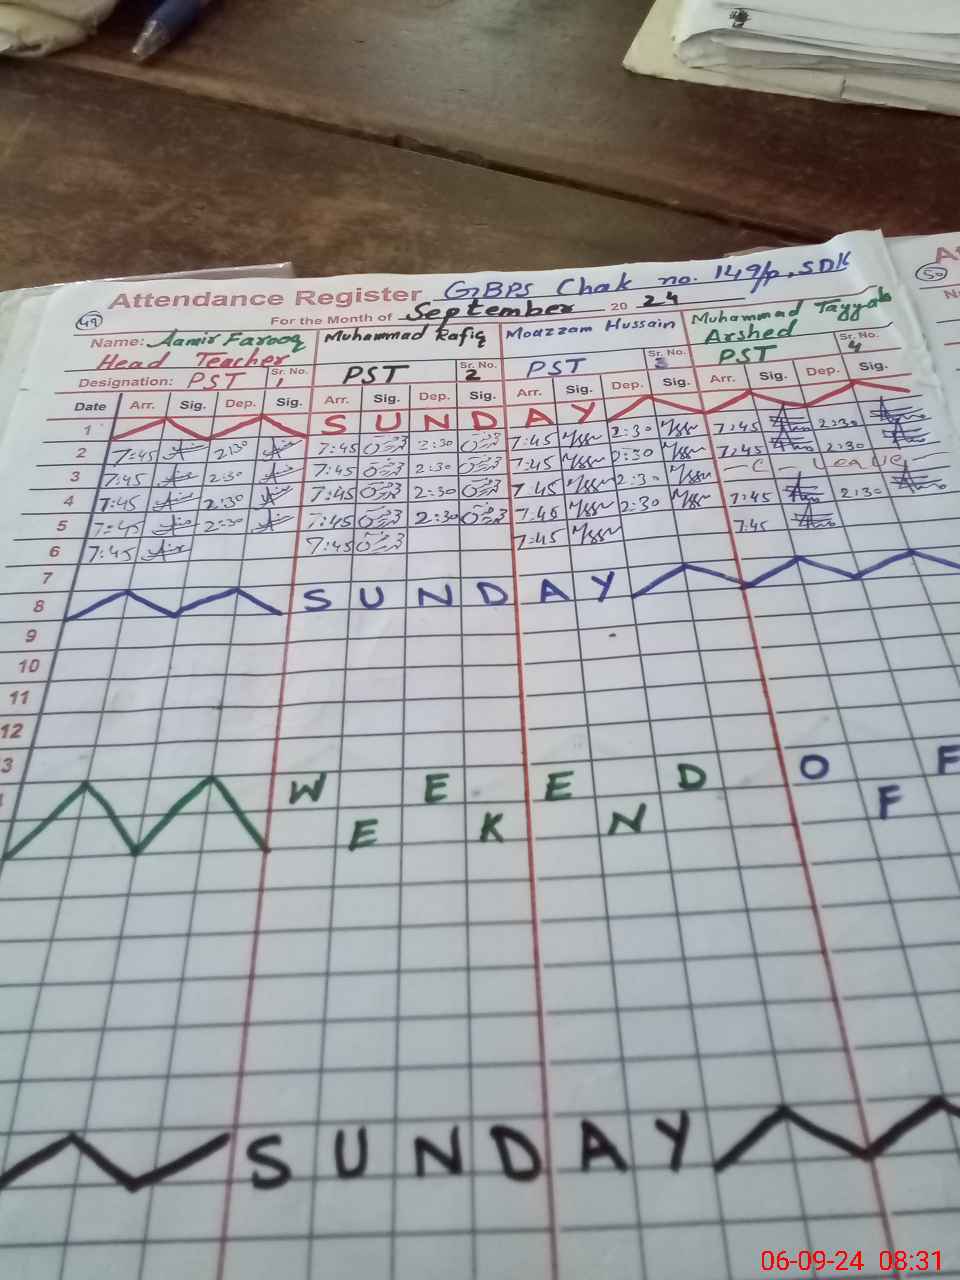 Attendance Register GBPS Chak no. 149/p, SDK
49
For the Month of September 20 24
Name: Aamir Farooq Muhammad Rafiq Moazzam Hussain Muhammad Tayyab
Head Teacher Arshed
Designation: PST Sr. No. 1 PST Sr. No. 2 PST Sr. No. 3 PST Sr. No. 4
Date Arr. Sig. Dep. Sig. Arr. Sig. Dep. Sig. Arr. Sig. Dep. Sig. Arr. Sig. Dep. Sig.
1 S U N D A Y
2 7:45 2:30 7:45 2:30 7:45 2:30 7:45 2:30
3 7:45 2:30 7:45 2:30 7:45 2:30 7:45 2:30
4 7:45 2:30 7:45 2:30 7:45 2:30 - C - Leave -
5 7:45 2:30 7:45 2:30 7:45 2:30 7:45 2:30
6 7:45 7:45 7:45 7:45
7
8 S U N D A Y
9
10
11
12
3
W E E K E N D O F F
S U N D A Y
50
06-09-24 08:31